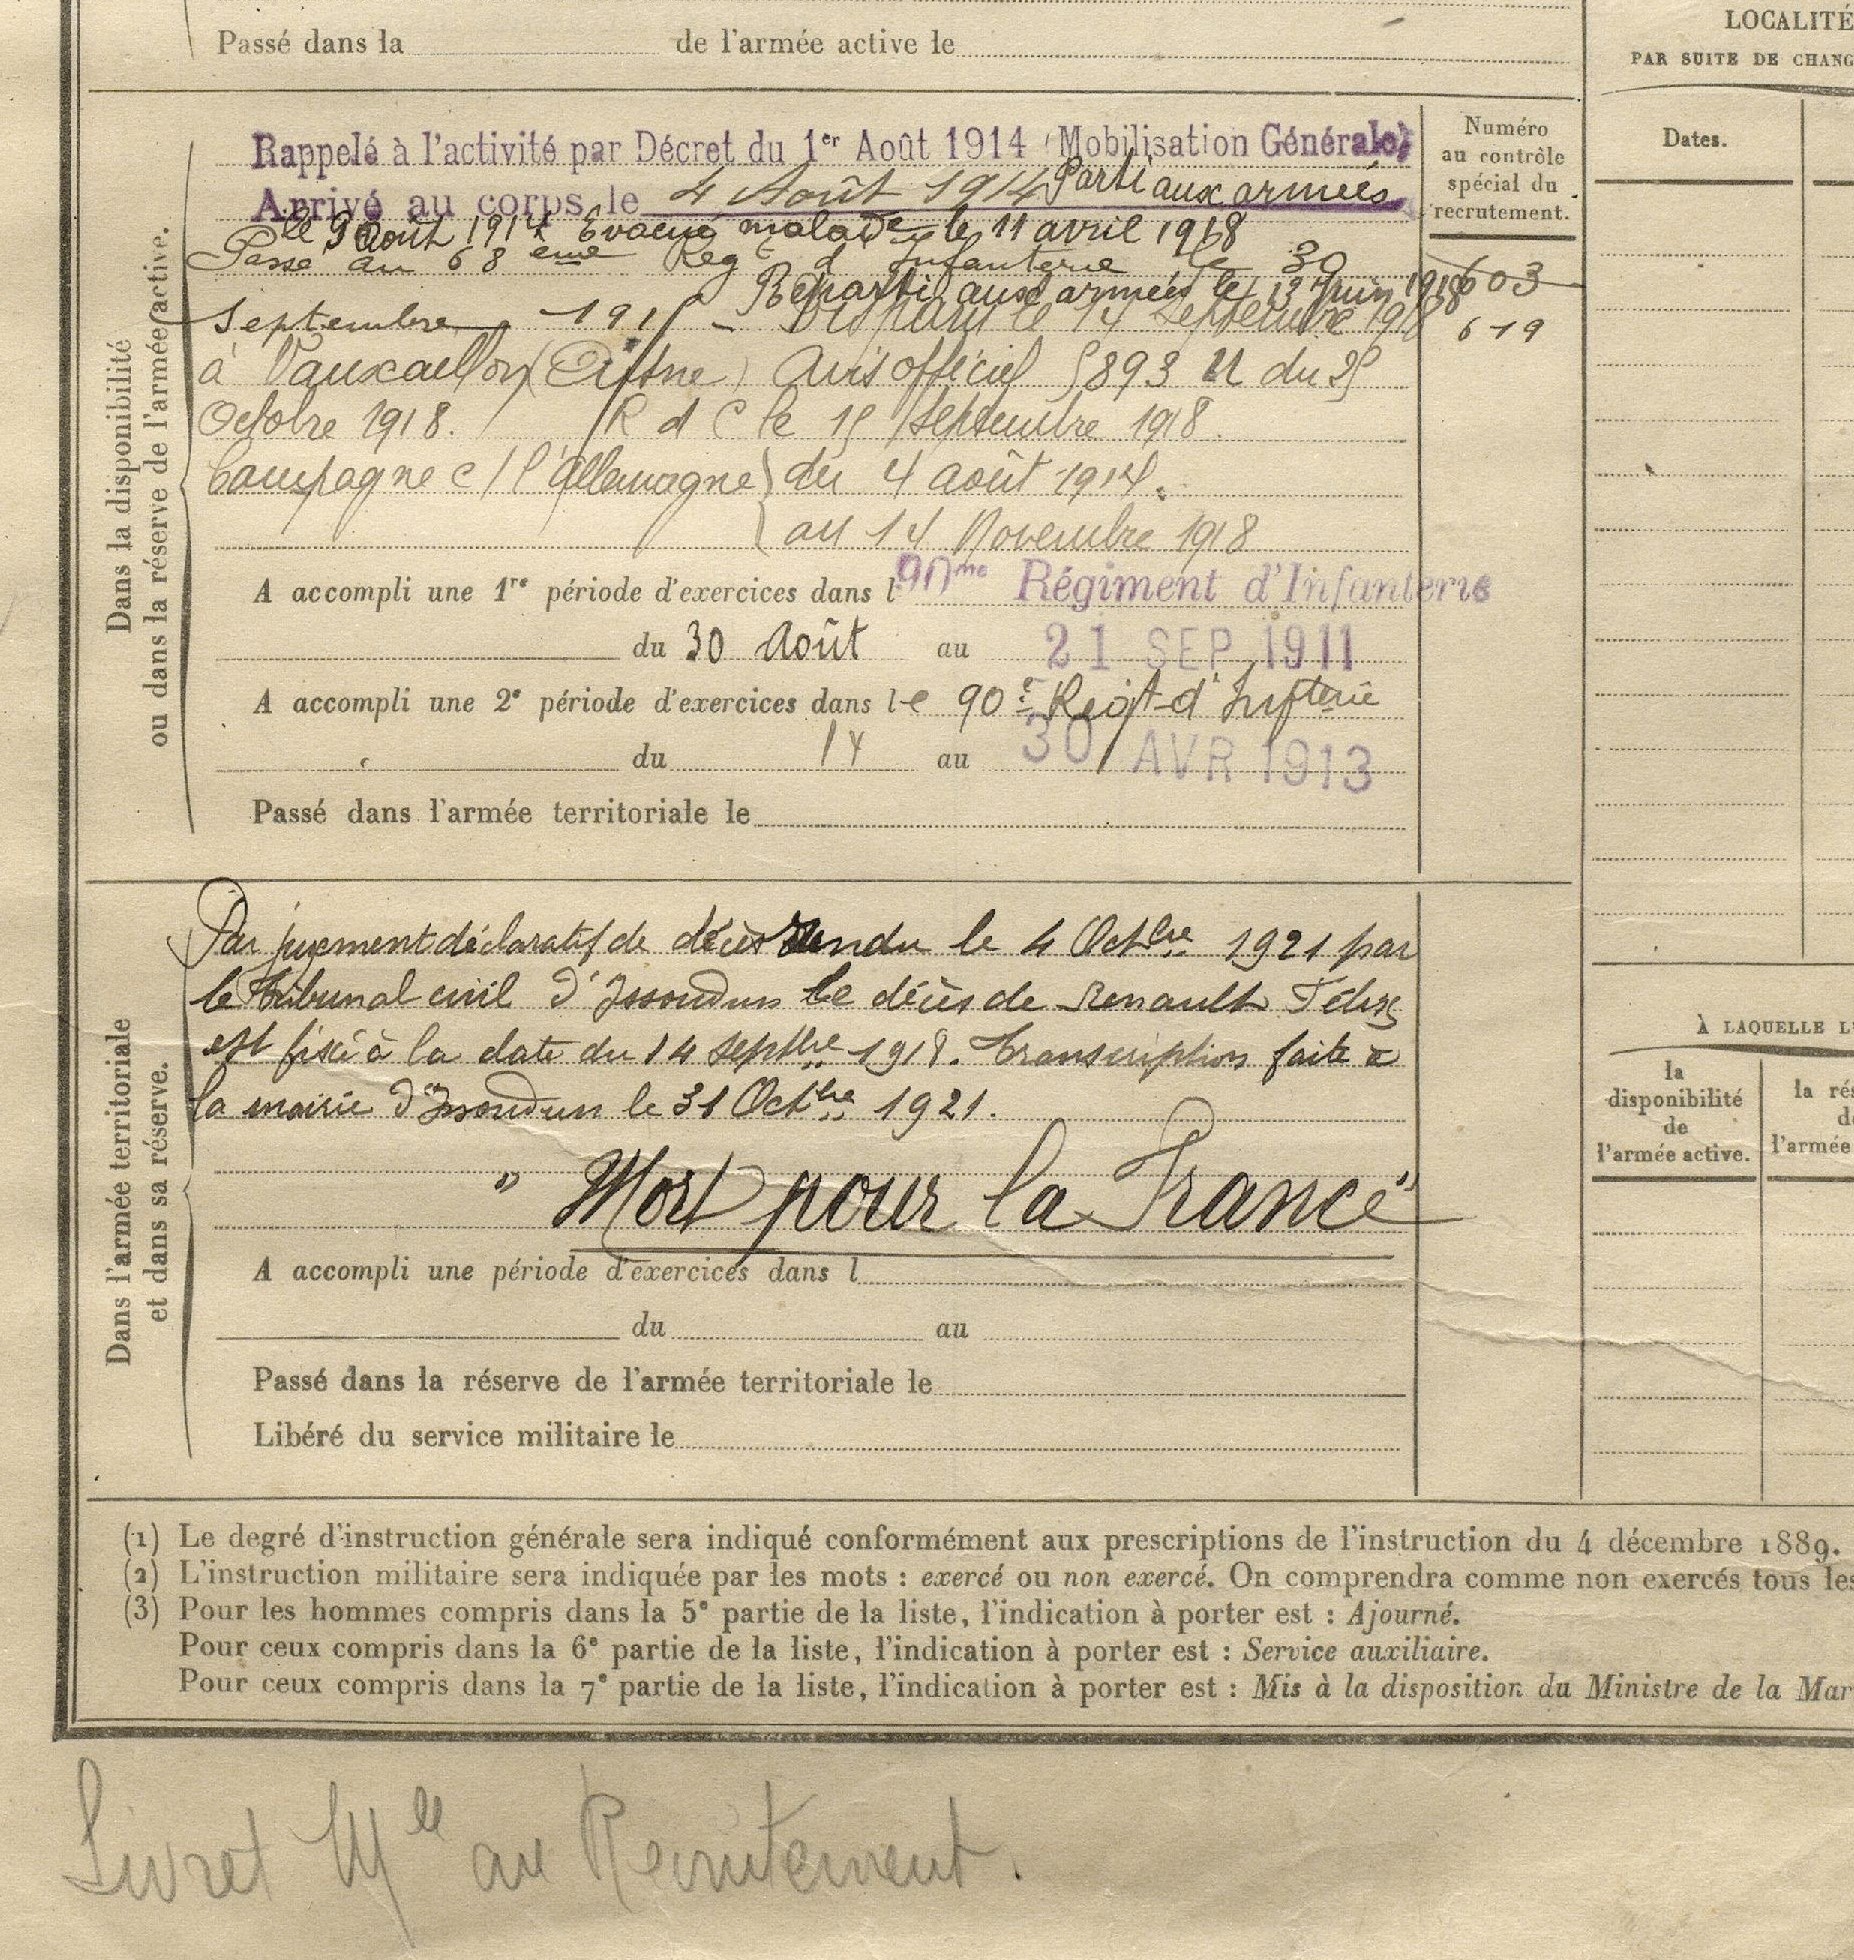 Passé dans la de l'armée active le
LOCALITÉ
PAR SUITE DE CHANG
Dans la disponibilité
ou dans la réserve de l'armée active.
Rappelé à l'activité par Décret du 1er Août 1914 (Mobilisation Générale)
Arrivé au corps le 4 Août 1914 Parti aux armées
le 9 Août 1914 Evacué malade le 11 avril 1918
Passé au 68 ème Reg d'Infanterie le 30
Reparti aux armées le 12 Juin 1918
Septembre 191 - Disparu le 14 Septembre 1918
à Vauxaillon (Aisne) Avis officiel 5893 U du 25
Octobre 1918. R d C le 15 Septembre 1918.
Campagne c/ l'Allemagne } du 4 août 1914.
au 14 Novembre 1918
A accompli une 1re période d'exercices dans l 90me Régiment d'Infanterie
du 30 Août au 21 SEP 1911
A accompli une 2e période d'exercices dans le 90e Régt d'Infterie
du 14 au 30 AVR 1913
Passé dans l'armée territoriale le
Numéro
au contrôle
spécial du
recrutement.
603
619
Dates.
Dans l'armée territoriale
et dans sa réserve.
Par jugement déclaratif de décès rendu le 4 Octbre 1921 par
le tribunal civil d'Issoudun le décès de Renault Félix
est fixé à la date du 14 septbre 1918. Transcription faite à
la mairie d'Issoudun le 31 Octbre 1921.
"Mort pour la France"
A accompli une période d'exercices dans l
du au
Passé dans la réserve de l'armée territoriale le
Libéré du service militaire le
À LAQUELLE L'
la
disponibilité
de
l'armée active.
la rés
de
l'armée
(1) Le degré d'instruction générale sera indiqué conformément aux prescriptions de l'instruction du 4 décembre 1889.
(2) L'instruction militaire sera indiquée par les mots : exercé ou non exercé. On comprendra comme non exercés tous les
(3) Pour les hommes compris dans la 5e partie de la liste, l'indication à porter est : Ajourné.
Pour ceux compris dans la 6e partie de la liste, l'indication à porter est : Service auxiliaire.
Pour ceux compris dans la 7e partie de la liste, l'indication à porter est : Mis à la disposition du Ministre de la Mar
Livret Mle au Recrutement.